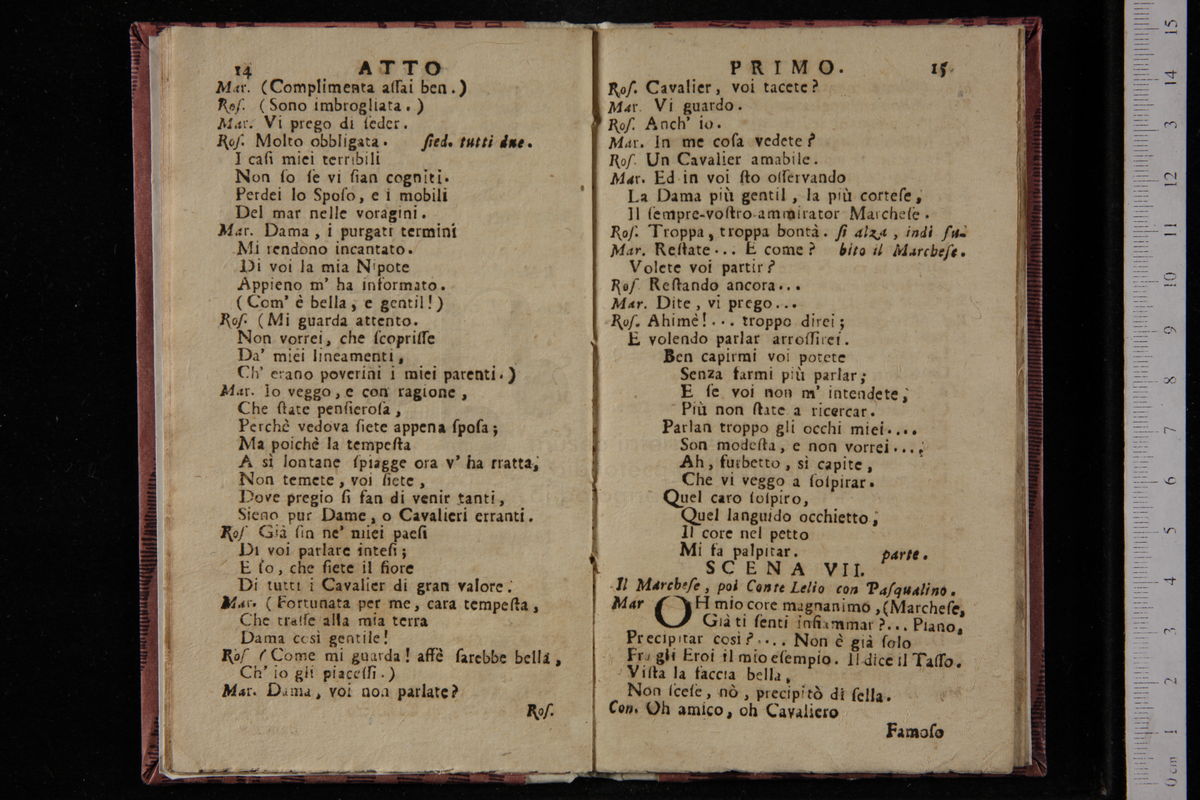 14 ATTO
Mar. (Complimenta aſſai ben.)
Roſ. (Sono imbrogliata.)
Mar. Vi prego di ſeder.
Roſ. Molto obbligata. ſied. tutti due.
I caſi miei terribili
Non ſo ſe vi ſian cogniti.
Perdei lo Spoſo, e i mobili
Del mar nelle voragini.
Mar. Dama, i purgati termini
Mi rendono incantato.
Di voi la mia Nipote
Appieno m' ha informato.
(Com' è bella, e gentil!)
Roſ. (Mi guarda attento.
Non vorrei, che ſcopriſſe
Da' miei lineamenti,
Ch' erano poverini i miei parenti.)
Mar. Io veggo, e con ragione,
Che ſtate penſieroſa,
Perchè vedova ſiete appena ſpoſa;
Ma poichè la tempeſta
A sì lontane ſpiagge ora v' ha tratta,
Non temete, voi ſiete,
Dove pregio ſi fan di venir tanti,
Sieno pur Dame, o Cavalieri erranti.
Roſ Già ſin ne' miei paeſi
Di voi parlare inteſi;
E ſo, che ſiete il fiore
Di tutti i Cavalier di gran valore.
Mar. (Fortunata per me, cara tempeſta,
Che traſſe alla mia terra
Dama così gentile!
Roſ (Come mi guarda! affè ſarebbe bella,
Ch' io gli piaceſſi.)
Mar. Dama, voi non parlate?
Roſ.
PRIMO. 15.
Roſ. Cavalier, voi tacete?
Mar. Vi guardo.
Roſ. Anch' io.
Mar. In me coſa vedete?
Roſ. Un Cavalier amabile.
Mar. Ed in voi ſto oſſervando
La Dama più gentil, la più corteſe,
Il ſempre-voſtro ammirator Marcheſe.
Roſ. Troppa, troppa bontà. ſi alza, indi ſu-
Mar. Reſtate... E come? bito il Marcheſe.
Volete voi partir?
Roſ Reſtando ancora...
Mar. Dite, vi prego...
Roſ. Ahimè!... troppo direi;
E volendo parlar arroſſirei.
Ben capirmi voi potete
Senza farmi più parlar;
E ſe voi non m' intendete,
Più non ſtate a ricercar.
Parlan troppo gli occhi miei....
Son modeſta, e non vorrei....;
Ah, furbetto, sì capite,
Che vi veggo a ſoſpirar.
Quel caro ſoſpiro,
Quel languido occhietto,
Il core nel petto
Mi fa palpitar. parte.
SCENA VII.
Il Marcheſe, poi Conte Lelio con Paſqualino.
Mar OH mio core magnanimo, (Marcheſe,
Già ti ſenti infiammar?... Piano,
Precipitar così?.... Non è già ſolo
Fra gli Eroi il mio eſempio. Il dice il Taſſo.
Viſta la faccia bella,
Non ſceſe, nò, precipitò di ſella.
Con. Oh amico, oh Cavaliero
Famoſo
0 cm 1 2 3 4 5 6 7 8 9 10 11 12 3 14 15